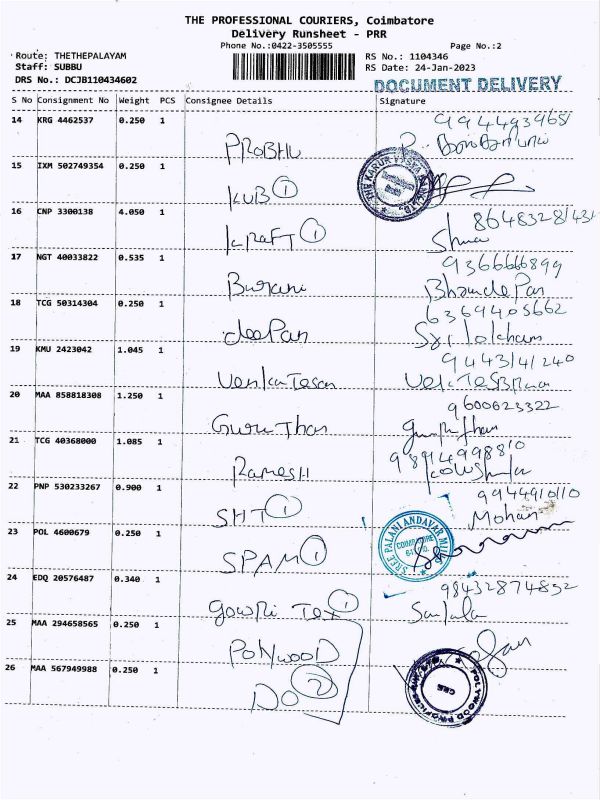 THE PROFESSIONAL COURIERS, Coimbatore
Delivery Runsheet - PRR
Phone No.:0422-3505555
Page No.:2
Route: THETHEPALAYAM
RS No.: 1104346
Staff: SUBBU
RS Date: 24-Jan-2023
DRS No.: DCJB110434602
DOCUMENT DELIVERY
S No Consignment No Weight PCS Consignee Details Signature
14 KRG 4462537 0.250 1
PRABHU
15 IXM 502749354 0.250 1
KVB 1
THE KARUR VYSYA BANK LTD.
16 CNP 3300138 4.050 1
Kraft 1
17 NGT 40033822 0.535 1
9366666899
18 TCG 50314304 0.250 1
deepan
6369405662
19 KMU 2423042 1.045 1
Venkatesan
9443141240
20 MAA 858818308 1.250 1
Guru Than
9600623322
21 TCG 40368000 1.085 1
RAMESH
98914998810
22 PNP 530233267 0.900 1
SHT 1
9944910110
Mohan
23 POL 4600679 0.250 1
SPAM 1
SREE PALANI ANDAVAR MILLS
COIMBATORE
24 EDQ 20576487 0.340 1
Gowri Tex 1
98432874852
25 MAA 294658565 0.250 1
POLYWOOD
26 MAA 567949988 0.250 1
DO 2
POLYWOOD PROFILES
CBE